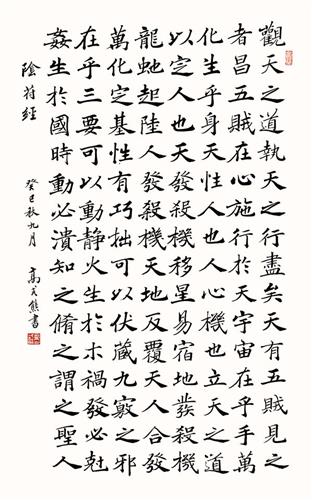 觀天之道執天之行盡矣天有五賊見之
者昌五賊在心施行於天宇宙在乎手萬
化生乎身天性人也人心機也立天之道
以定人也天發殺機移星易宿地發殺機
龍虵起陸人發殺機天地反覆天人合發
萬化定基性有巧拙可以伏藏九竅之邪
在乎三要可以動靜火生於木禍發必尅
姦生於國時動必潰知之脩之謂之聖人
隂符經 癸巳秋九月 高 熊書